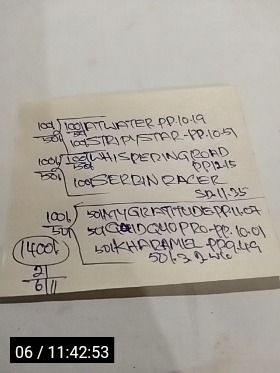 100/ 100/ ATWATER-PP.10.19
50/ 50/
100/ STRIPYSTAR-PP.10.51
100/ 100/ WHISPERING ROAD
50/ 50/ PP12.15
100/ SERBIN RACER
SP.11.25
100/ 50/ MY GRATITUDE PP11.07
50/ 50/ QUIDQUO PRO-PP.10.01
50/ KHARAMEL-PP9.49
1400/
2/
6/11
06 / 11:42:53